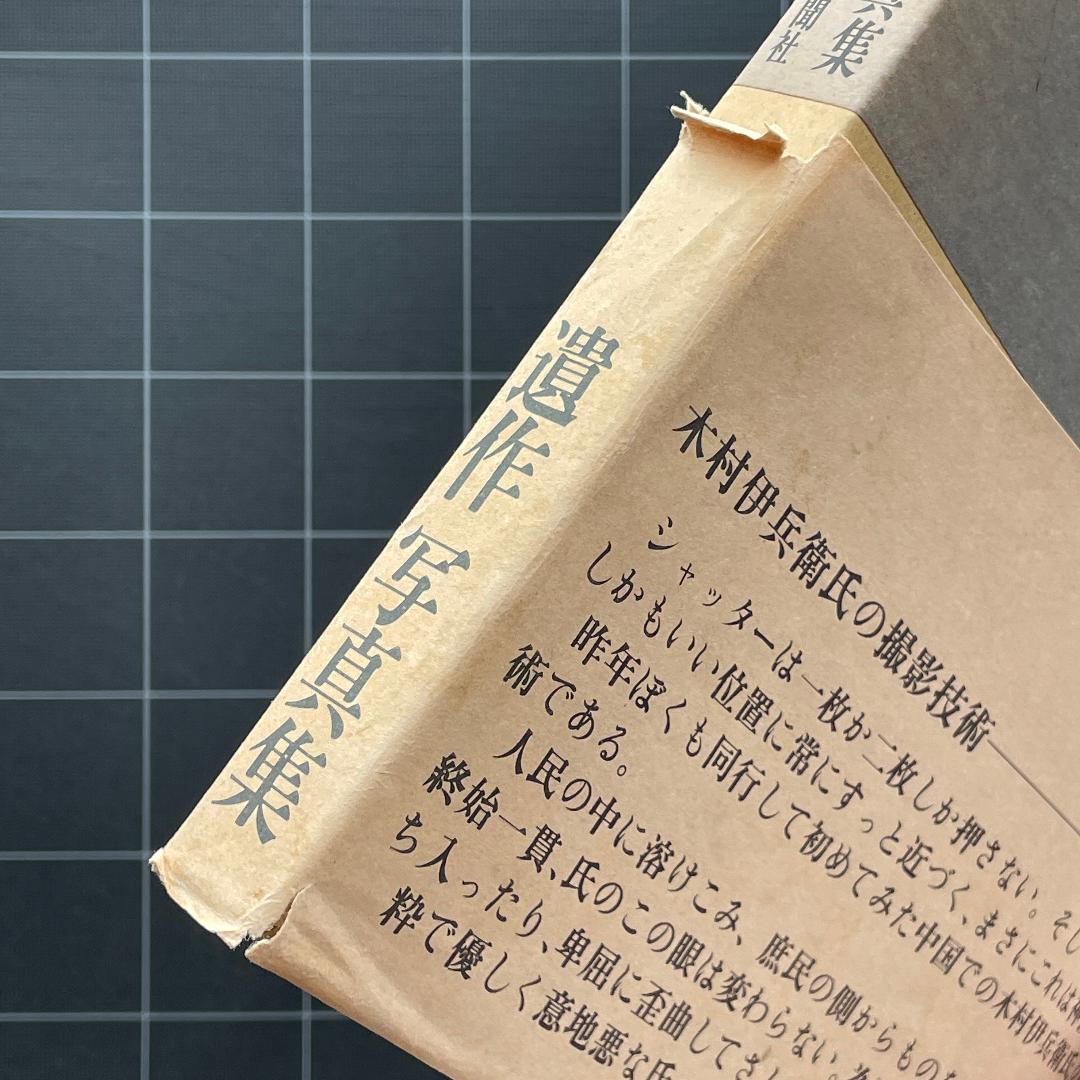 集
聞社
遺作 写真集
木村伊兵衛氏の撮影技術―
シャッターは一枚か二枚しか押さない。そし
しかもいい位置に常にすっと近づく、まさにこれは神
昨年ぼくも同行して初めてみた中国での木村伊兵衛氏の
術である。
人民の中に溶けこみ、庶民の側からものを
終始一貫、氏のこの眼は変わらない。為
ち入ったり、卑屈に歪曲してさし
粋で優しく意地悪な氏